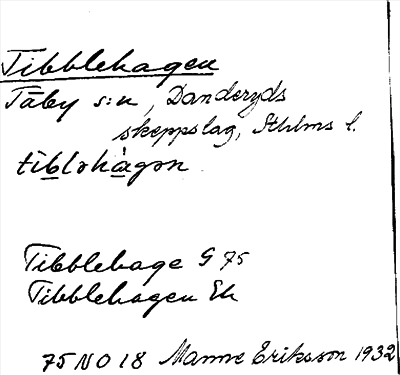 Tibblehagen
Täby s:n, Danderyds
skeppslag, Sthlms l.
tiblohàgon
Tibblehage G 75
Tibblehagen Ek
75 NO 18 Manne Eriksson 1932